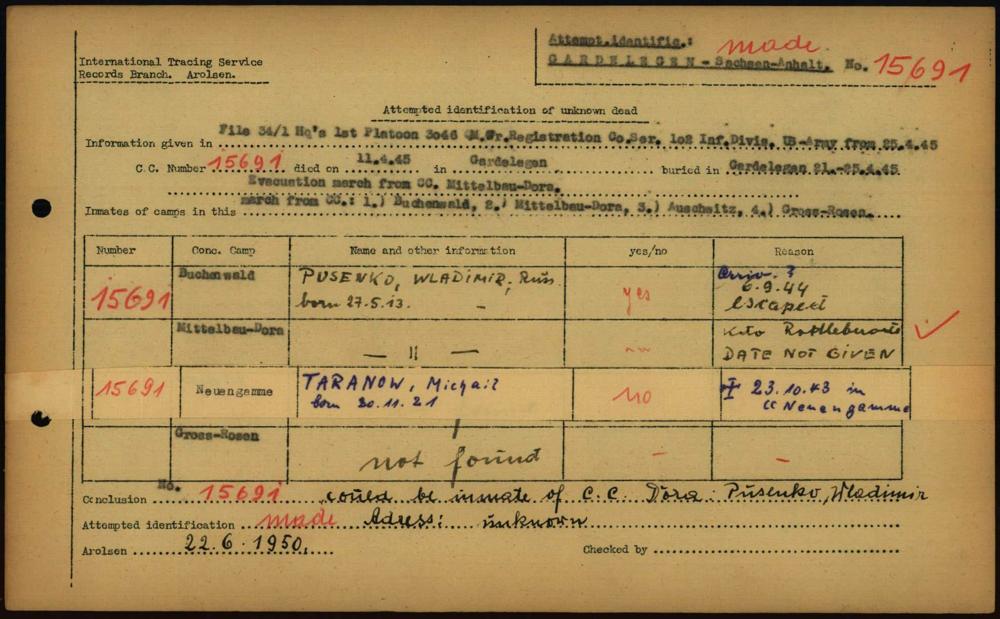 International Tracing Service
Records Branch. Arolsen.
Attempt.identific.: made
GARDELEGEN - Sachsen-Anhalt. No. 15691
Attempted identification of unknown dead
Information given in File 34/1 Hq's 1st Platoon 3046 QM.Gr.Registration Co.Ser. 102 Inf.Divis. US-Army from 25.4.45
C.C. Number 15691 died on 11.4.45 in Gardelegen buried in Gardelegen 21.-25.4.45
Evacuation march from CC. Mittelbau-Dora.
Inmates of camps in this march from CC.: 1.) Buchenwald, 2.) Mittelbau-Dora, 3.) Auschwitz, 4.) Gross-Rosen.
Number Conc. Camp Name and other information yes/no Reason
15691 Buchenwald PUSENKO, WLADIMIR, Russ. born 27.5.13. - yes 6.9.44 escaped
Mittelbau-Dora — " — DATE NOT GIVEN
15691 Neuengamme TARANOW, Michail born 20.11.21 no 23.10.43 in CC Neuengamme
Gross-Rosen not found - -
Conclusion No. 15691 could be inmate of C.C. Dora Pusenko, Wladimir
Attempted identification made Adress: unknown
Arolsen 22.6.1950. Checked by